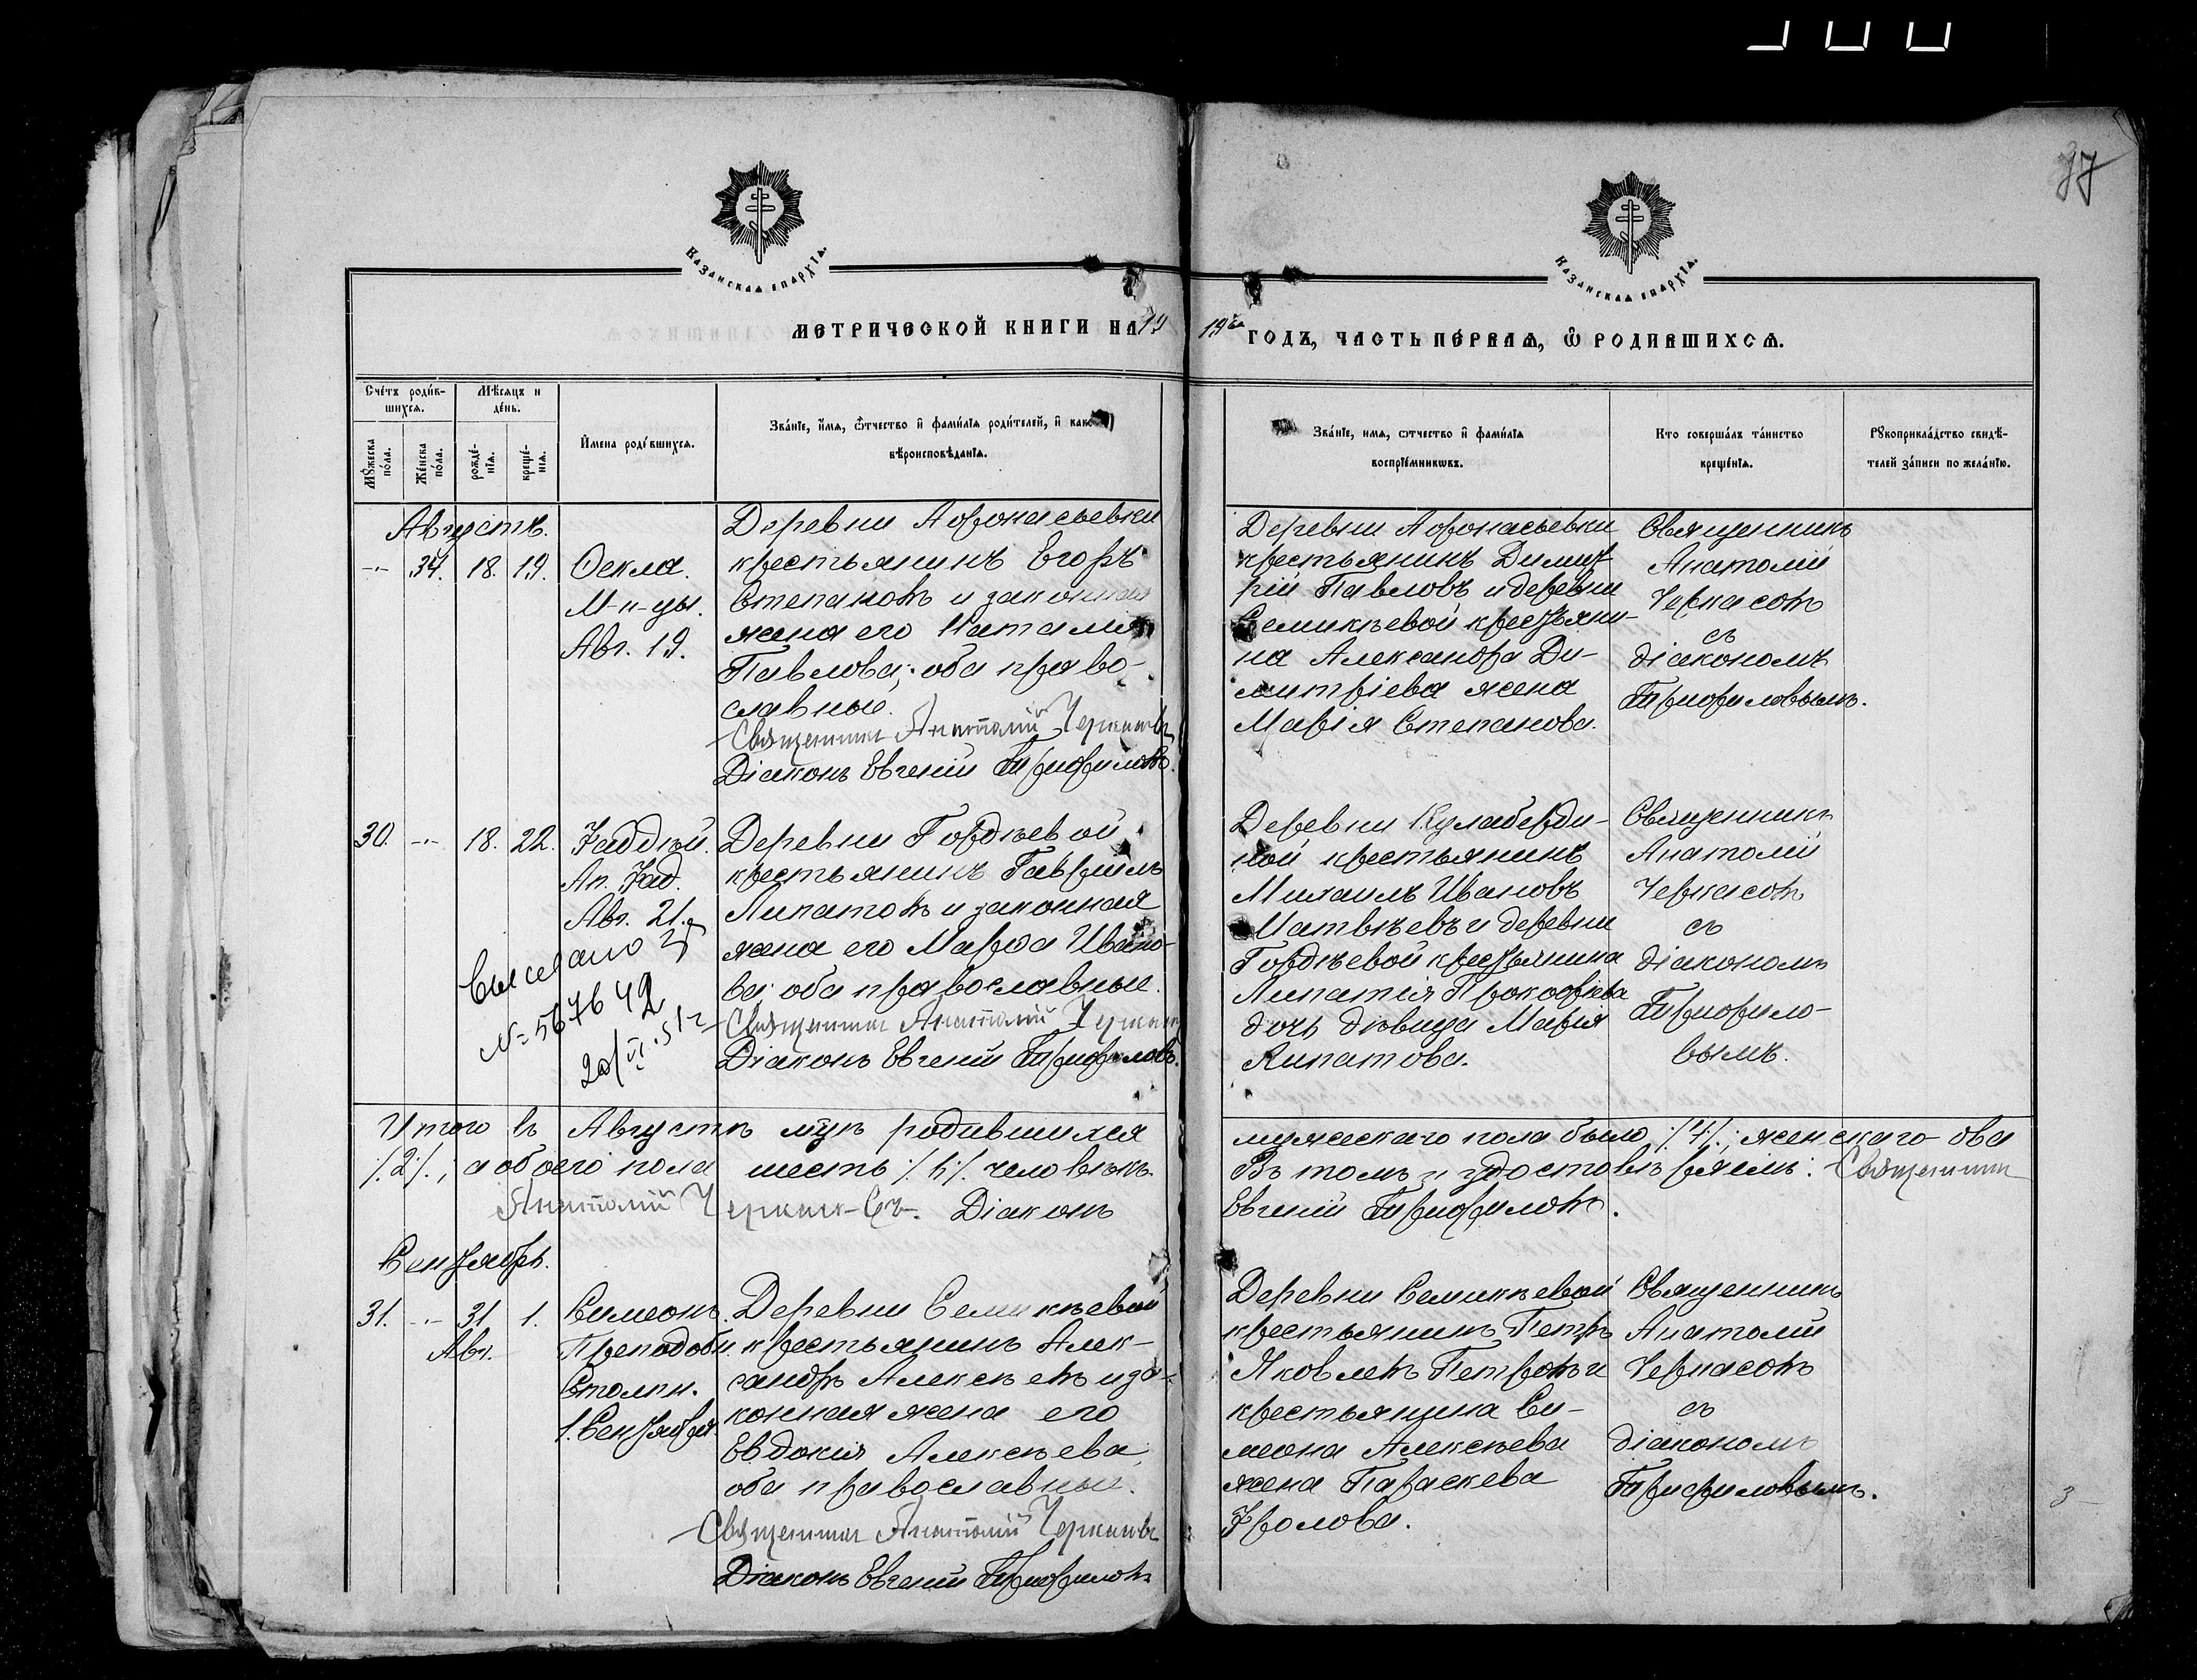 77
Казанская епархїѧ.
Казанская епархїѧ.
МЕТРИЧЕСКОЙ КНИГИ НА 19
19го ГОДЪ, ЧАСТЬ ПЕ́РВАѦ, Ѡ҆ РОДИВШИХСѦ.
Сче́тъ роди́в-
шихсѧ.
Мѣ́сяцъ и
де́нь.
Мꙋ́жеска
по́ла.
Же́нска
по́ла.
рожде́-
нїѧ.
креще́-
нїѧ.
И҆мена роди́вшихсѧ.
Зва́нїе, и҆́мѧ, ѻ҆́тчество и҆ фами́лїѧ роди́телей, и҆ како
вѣроисповѣ́данїѧ.
Зва́нїе, имѧ, ѻтчество и҆ фами́лїѧ
воспрїе́мникѡвъ.
Кто соверша́лъ та́инство
креще́нїѧ.
Рꙋкоприкла́дство свидѣ́-
телей за́писи по жела́нїю.
Августъ.
-"- 34. 18. 19.
Ѳекла.
М-ц-цы.
Авг. 19.
Деревни Афонасьевки
крестьянинъ Егоръ
Степановъ и законная
жена его Наталия
Павлова; оба право-
славные.
Священникъ Анатолій Черкасовъ
Діаконъ Евгеній Трифиловъ.
Деревни Афонасьевки
крестьянинъ Димит-
рій Павловъ и деревни
Семикѣевой крестьяни-
на Александра Ди-
митріева жена
Марія Степанова.
Священникъ
Анатолій
Черкасовъ
съ
діакономъ
Трифиловымъ.
30. -"- 18. 22.
Ѳаддѣй.
Ап. Ѳад.
Авг. 21.
Выслано
№ 567642
20/VI.51 г
Деревни Гордѣевой
крестьянинъ Гавріилъ
Липатовъ и законная
жена его Марѳа Ивано-
ва; оба православные.
Священникъ Анатолій Черкасовъ
Діаконъ Евгеній Трифиловъ.
Деревни Кулаберди-
ной крестьянинъ
Михаилъ Ивановъ
Матвѣевъ и деревни
Гордѣевой крестьянина
Липатія Прокофіева
дочь дѣвица Марія
Липатова.
Священникъ
Анатолій
Черкасовъ
съ
діакономъ
Трифило-
вымъ.
Итого въ Августѣ мцѣ родившихся
мужескаго пола было /.4/.; женскаго два
/.2/.; а обоего пола шесть /.6/. человѣкъ.
Въ томъ и удостовѣряемъ: Священникъ
Анатолій Черкасовъ. Діаконъ
Евгеній Трифиловъ.
Сентябрь.
31. -"- 31 1.
Авг.
Симеонъ.
Преподобн.
Столпн.
1. Сентября.
Деревни Семикѣевой
крестьянинъ Алек-
сандръ Алексѣевъ и за-
конная жена его
Евдокія Алексѣева;
оба православные.
Священникъ Анатолій Черкасовъ
Діаконъ Евгеній Трифиловъ
Деревни Семикѣевой
крестьянинъ Петръ
Яковлевъ Петровъ и
крестьянина Си-
меона Алексѣева
жена Параскева
Фролова.
Священникъ
Анатолій
Черкасовъ
съ
діакономъ
Трифиловымъ.
3